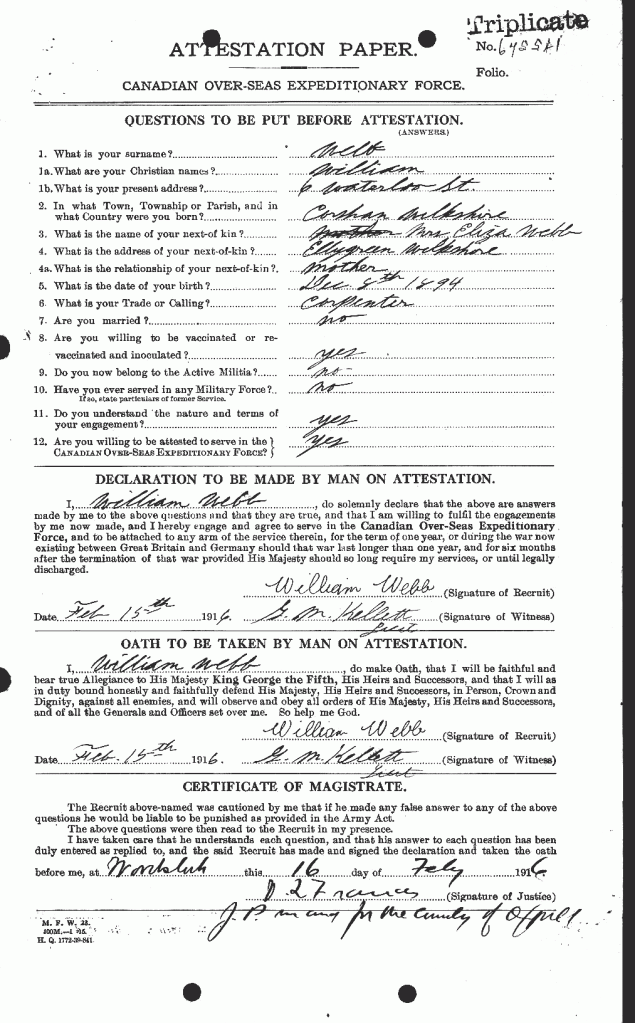 Triplicate
ATTESTATION PAPER.
No.
Folio.
CANADIAN OVER-SEAS EXPEDITIONARY FORCE.
QUESTIONS TO BE PUT BEFORE ATTESTATION.
(ANSWERS.)
1. What is your surname? Webb
1a. What are your Christian names? William
1b. What is your present address? 6 Waterloo St.
2. In what Town, Township or Parish, and in
what Country were you born? Corshan Wilkshire
3. What is the name of your next-of kin? Mrs Eliza Webb
4. What is the address of your next-of-kin? Wilkshire
4a. What is the relationship of your next-of-kin? mother
5. What is the date of your birth? Dec 8th 1894
6. What is your Trade or Calling? Carpenter
7. Are you married? no
8. Are you willing to be vaccinated or re-
vaccinated and inoculated? yes
9. Do you now belong to the Active Militia? no
10. Have you ever served in any Military Force? no
If so, state particulars of former Service.
11. Do you understand the nature and terms of
your engagement? yes
12. Are you willing to be attested to serve in the
CANADIAN OVER-SEAS EXPEDITIONARY FORCE? yes
DECLARATION TO BE MADE BY MAN ON ATTESTATION.
I, William Webb, do solemnly declare that the above are answers
made by me to the above questions and that they are true, and that I am willing to fulfil the engagements
by me now made, and I hereby engage and agree to serve in the Canadian Over-Seas Expeditionary
Force, and to be attached to any arm of the service therein, for the term of one year, or during the war now
existing between Great Britain and Germany should that war last longer than one year, and for six months
after the termination of that war provided His Majesty should so long require my services, or until legally
discharged.
William Webb (Signature of Recruit)
Date Feb 15th 1916. G. M. Kellett (Signature of Witness)
Lieut
OATH TO BE TAKEN BY MAN ON ATTESTATION.
I, William Webb, do make Oath, that I will be faithful and
bear true Allegiance to His Majesty King George the Fifth, His Heirs and Successors, and that I will as
in duty bound honestly and faithfully defend His Majesty, His Heirs and Successors, in Person, Crown and
Dignity, against all enemies, and will observe and obey all orders of His Majesty, His Heirs and Successors,
and of all the Generals and Officers set over me. So help me God.
William Webb (Signature of Recruit)
Date Feb. 15th 1916. G. M. Kellett (Signature of Witness)
Lieut
CERTIFICATE OF MAGISTRATE.
The Recruit above-named was cautioned by me that if he made any false answer to any of the above
questions he would be liable to be punished as provided in the Army Act.
The above questions were then read to the Recruit in my presence.
I have taken care that he understands each question, and that his answer to each question has been
duly entered as replied to, and the said Recruit has made and signed the declaration and taken the oath
before me, at Woodstock this 16 day of Feby 1916
Frances (Signature of Justice)
J. P. in and for the County of Oxford
M. F. W. 23.
H. Q. 1772-39-841.